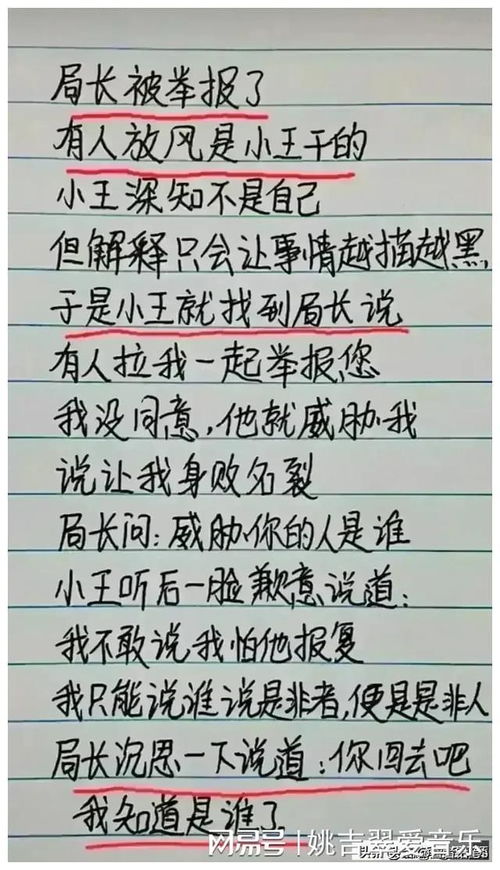 局长被举报了
有人放风是小王干的
小王深知不是自己
但解释只会让事情越描越黑
于是小王就找到局长说
有人拉我一起举报您
我没同意,他就威胁我
说让我身败名裂
局长问:威胁你的人是谁
小王听后一脸歉意说道:
我不敢说我怕他报复
我只能说谁说是非者,便是是非人
局长沉思一下说道:你回去吧
我知道是谁了
网易号 | 姚吉翠爱音乐